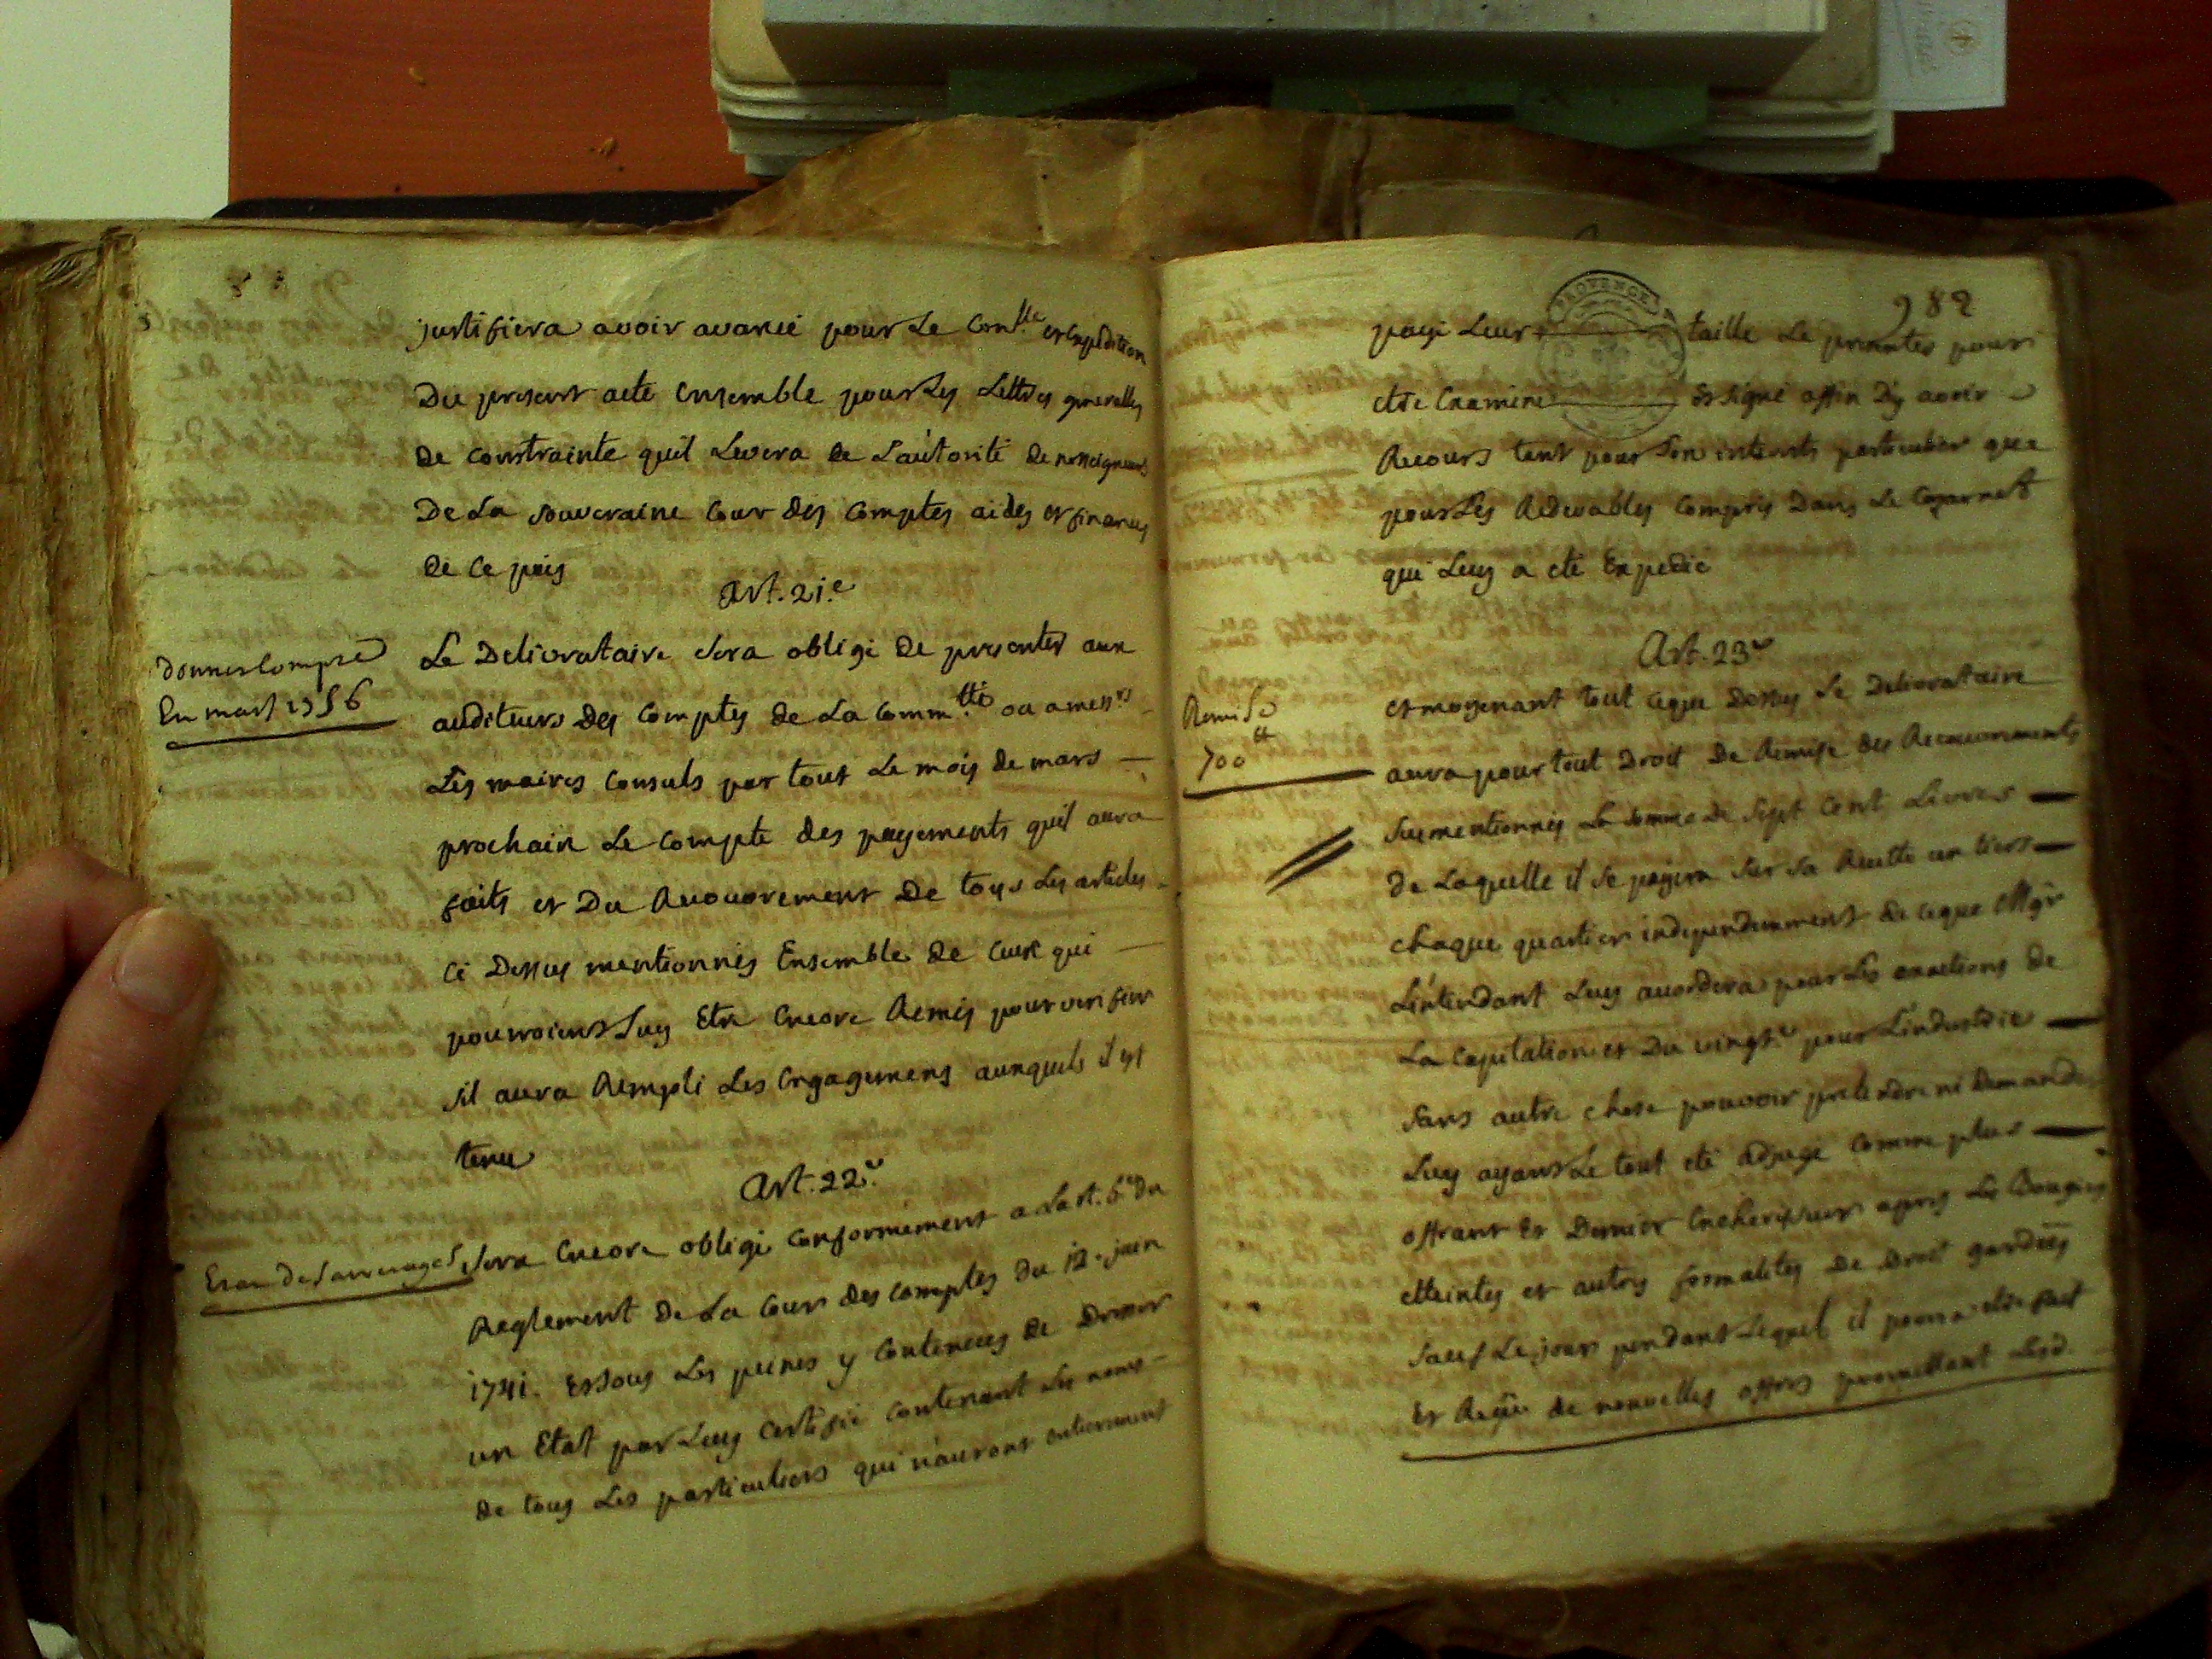 justifiera avoir avancé pour Le Con.lle et expedition
Du present acte Ensemble pour Les Lettres generalles
De constrainte quil Levera de L'autorité de nosseigneurs
De La souveraine Cour des Comptes aides et finances
de Ce pais
Art. 21.e
donner Compte
En mars 1756
Le Delivrataire Sera obligé De presenter aux
auditeurs Des Comptes de La Comm.tté ou a mess.rs
Les maires Consuls par tout Le mois de mars
prochain Le Compte des payements quil aura
faits et Du Recouvrement De tous Les articles
Ci Dessus mentionnés Ensemble de Ceux qui
pourroient Luy Etre Encore Remis pour veriffier
sil aura Rempli Les Engagemens auxquels il est
tenu
Art. 22.e
Etat Des arrerages
Sera Encore obligé Conformement a L'art. 6e du
Reglement De La Cour des Comptes du 12. juin
1741. Et sous Les peines y Contenues de Donner
un Etat par Luy Certifié Contenant Les noms
de tous Les particuliers qui n'auront entierement
982
PROVENCE
payé Leur taille Le premettes pour
etre Examiné et signé affin D'y avoir
Recours tant pour Son interets particulier que
pour Les Redevables Compris Dans Le Cazernet
qui Luy a eté Expedié
Art. 23.e
Remise
700 tt
et moyenant tout Ceque Dessus Le Delivrataire
aura pour tout Droit De Remise des Recouvrements
Susmentionnés La Somme De Sept Cent Livres
de Laquelle il Se payera Sur Sa Recette un tiers
chaque quartier independemment de Ceque Mgr
L'intendant Luy accordera pour Les exactions de
La Capitation et Du vingt.e pour L'industrie
Sans autre chose pouvoir pretendre ni Demander
Luy ayant Le tout eté adjugé Comme plus
offrant Et Dernier Encherisseur apres Les Bougies
etteintes et autres formalites De Droit gardées
Sauf Le jour pendant Lequel il pourra etre fait
Et Reçu de nouvelles offres promettant Lesd.